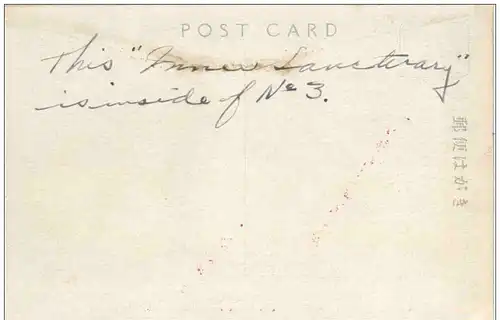 POST CARD
This "Inner Sanctuary"
is inside of No 3.
郵便はがき